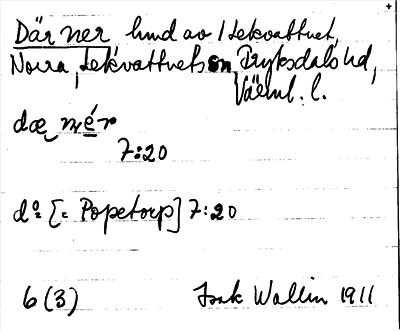 Där ner hmd av /Lekvattnet,
Norra Lekvattnets sn Fryksdals hd,
Värml. l.
dæ nér
7:20
do= [= Popetorp] 7:20
6 (3) Isak Wallin 1911